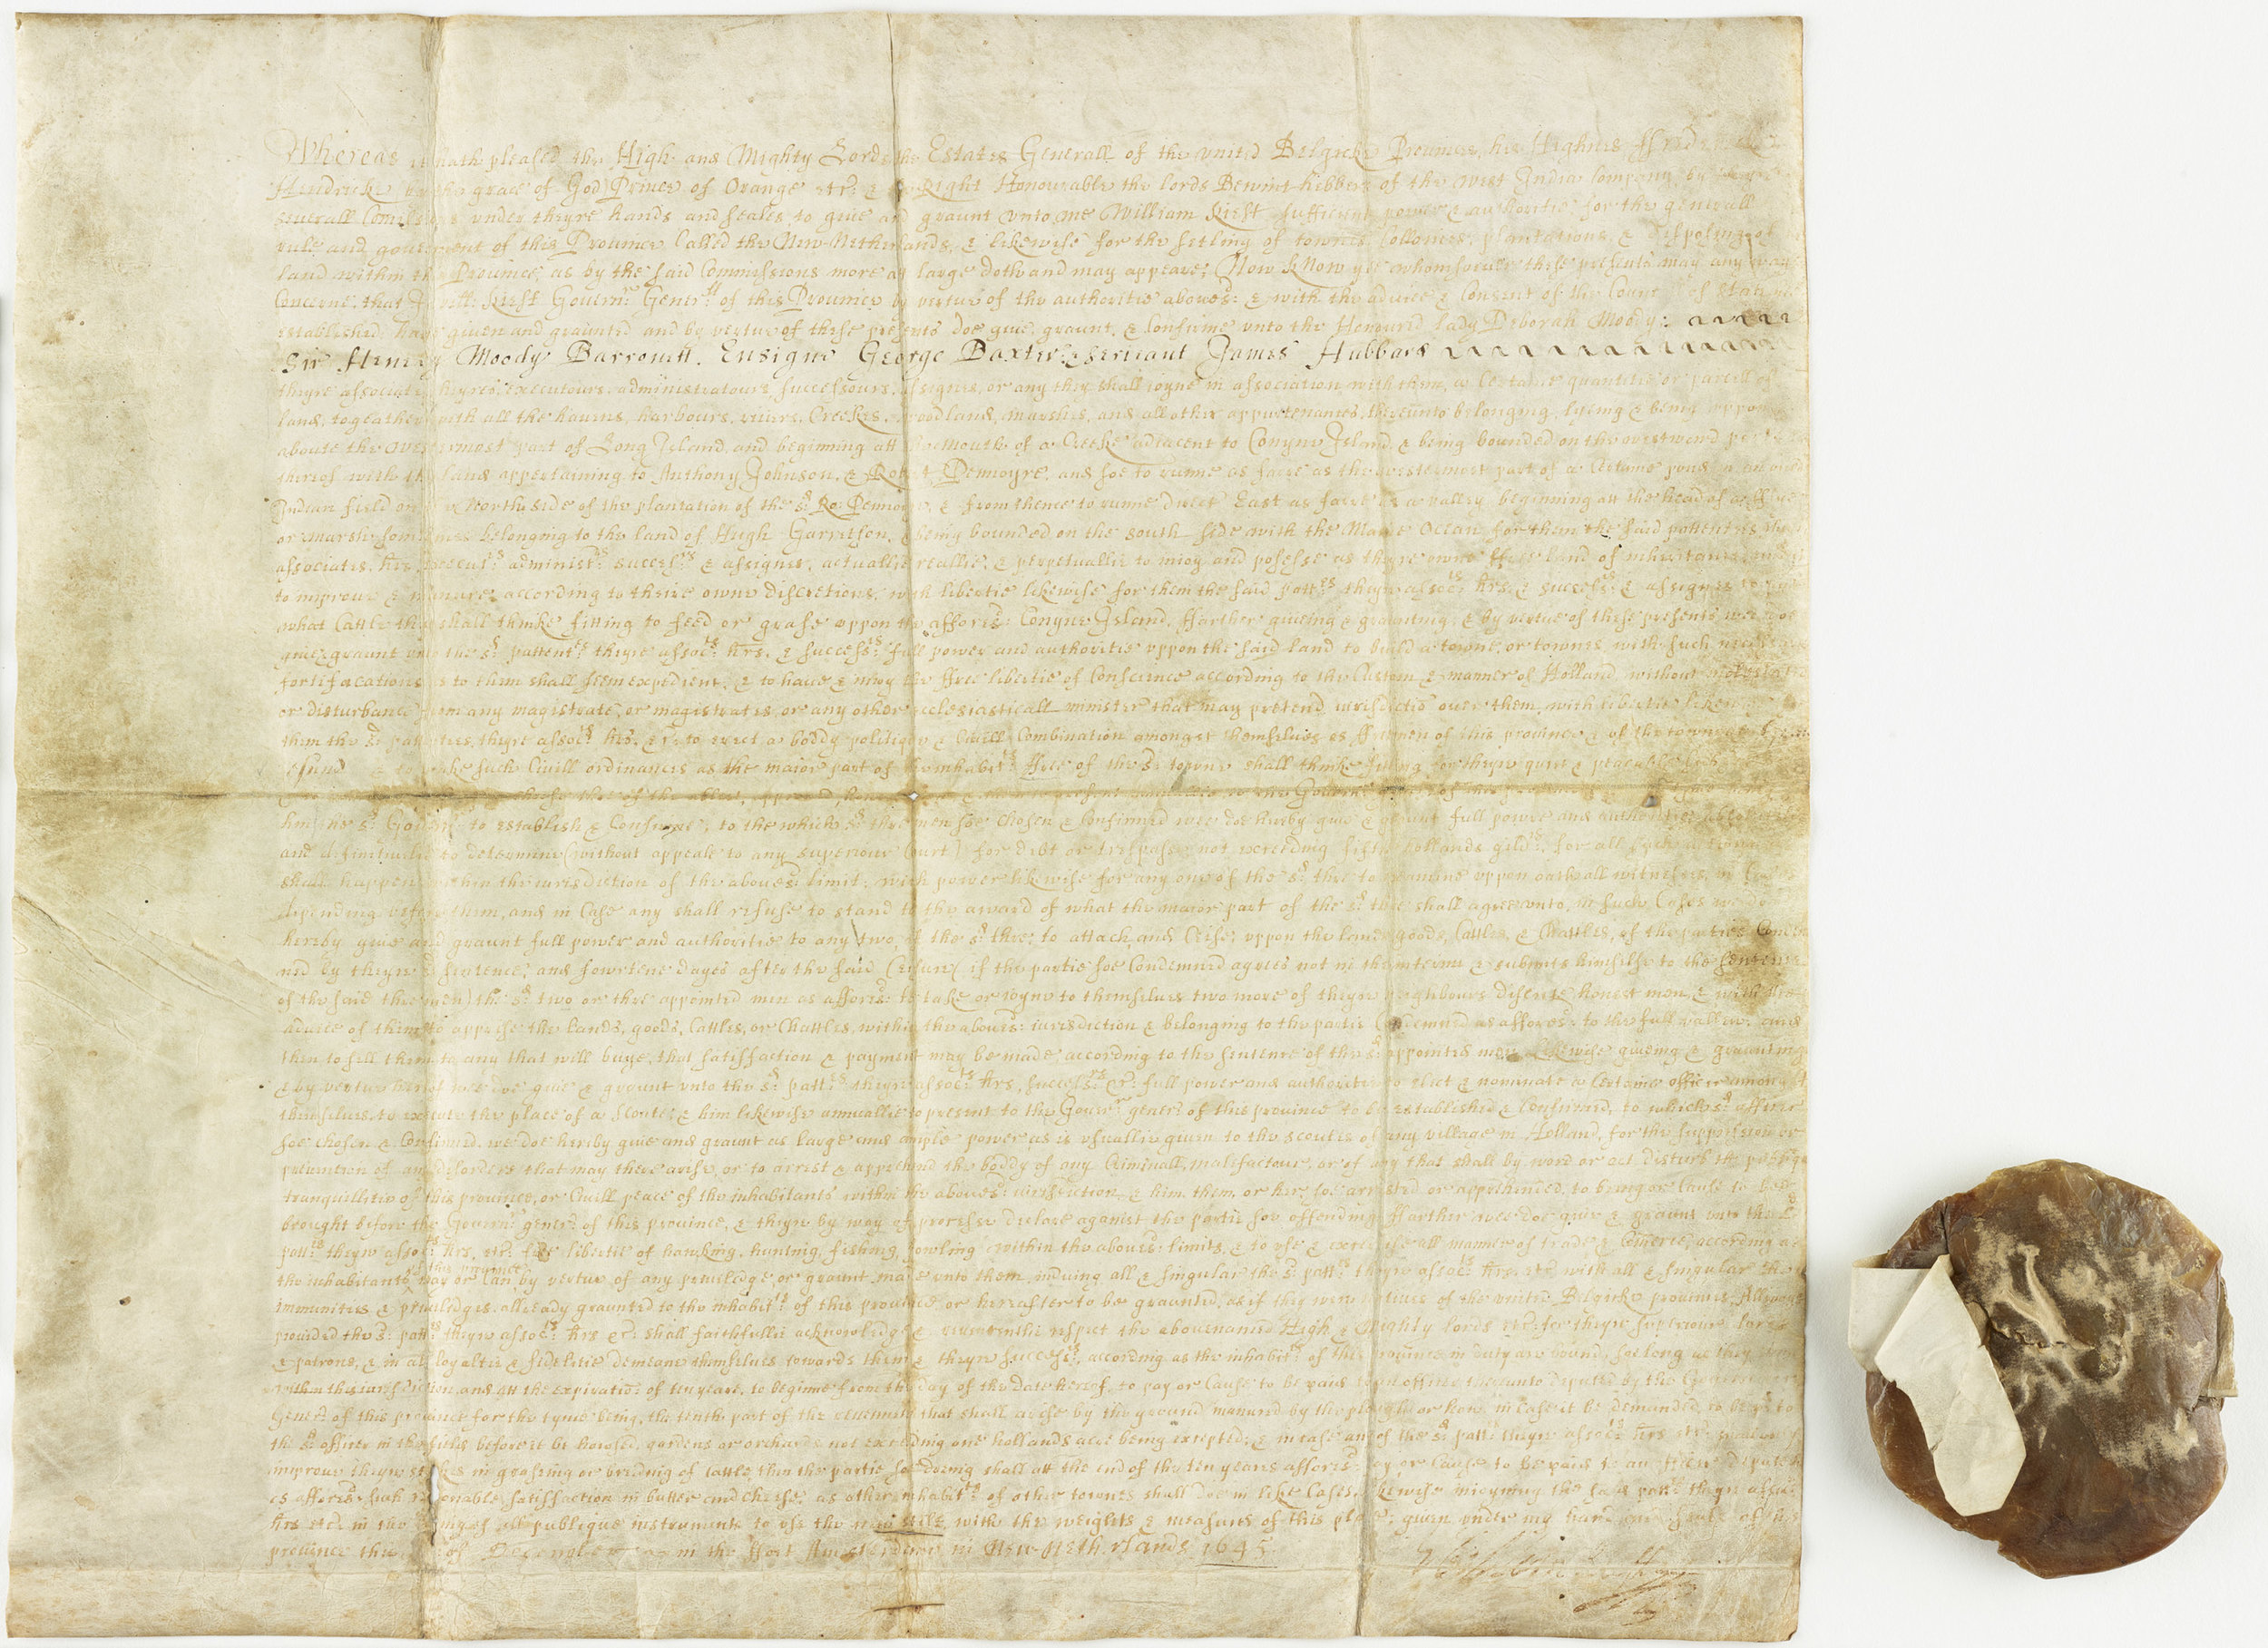 Whereas it hath pleased the High and Mighty Lords the Estates Generall of the united Belgicke Prouinces, his Highnes ffredericke
Hendricke by the grace of God Prince of Orange etc: & the Right Honourable the lords Bewint-hebbers of the West India Company, by
seuerall Comissions under theyre hands and seales to giue and graunt unto me William Kieft sufficient power & authoritie for the generall
rule and gouerment of this Prouince Called the New-Netherlands, & likewise for the setling of townes, Collonies, plantations, & disposing of
land within this Prouince, as by the said Commissions more att large doth and may appeare; Now Know yee whomsoeuer these presents may any way
Concerne, that I Will: Kieft Gouernr: Generll of this Prouince by vertue of the authoritie aboues:d & with the advice & Consent of the Councell of State
established, haue giuen and graunted and by vertue of these presents doe giue, graunt, & Confirme unto the Honoured lady Deborah Moody:
Sir Henery Moody Barronett. Ensigne George Baxter: & Seriant James Hubbard
theyre associates, heyres, executours, administratours, successours, assignes, or any they shall ioyne in association with them, a Certaine quantitie or parcell of
land, togeather with all the hauens, harbours, riuers, Creekes, woodland, marshes, and all other appurtenances, thereunto belonging, lyeing & being uppon &
aboute the westermost part of Long Island, and beginning att the mouth of a Creeke adiacent to Conyne Island & being bounded on the westward
thereof with the land appertaining to Anthony Johnson, & Robert Pennoyre, and soe to runne as farre as the westermost part of a Certaine pond in an ould
Indian field on the North side of the plantation of the sd: Ro: Pennoyre, & from thence to runne direct East as farre as a valley beginning att the head of a fflye
or marsh somtimes belonging to the land of Hugh Garretson, & being bounded on the south side with the Maine Ocean for them the said pattentees,
associates, hrs, execut:rs administ:rs success:rs & assignes, actuallie, reallie, & perpetuallie to inioy and possesse as theyre owne ffree land of inheritance, and
to improue & manure according to theire owne discretions, with libertie likewise for them the said patt:es theyre assoc:ts hrs, & success:rs & assignes to
what Cattle they shall thinke fitting to feed or grase uppon the affores:d Conyne Island. ffarther giueing & graunting, & by vertue of these presents wee doe
giue & graunt unto the sd: pattent:es theyre assoc:ts hrs, & success:rs full power and authoritie uppon the said land to build a towne, or townes with such necessarie
fortifacations as to them shall seem expedient; & to haue & inioy the ffree libertie of Conscience according to the Custom & manner of Holland, without molestation
or disturbance from any magistrate, or magistrates, or any other ecclesiasticall minister that may pretend iurisdictio over them, with libertie likewise
them the sd: pattentees, theyre assoc:ts hrs, &c: to erect a boddy politique & Ciuill Combination amongst themselues as ffreemen of this prouince & of the towne of
esend & to make such Ciuill ordinances as the maior part of the inhabit:ts ffree of the sd: towne shall thinke fitting for theyre quiet & peaceable
him the sd: Gouern:r to establish & Confirme; to the which sd: three men soe chosen & Confirmed wee doe hereby giue & graunt full power and authoritie absolutely
and definitiuelie to determine (without appeale to any superiour Court) for debt or trespasse not exceeding fiftie Hollands gild:rs for all such actions
shall happen within the iurisdiction of the aboues:d limit; with power likewise for any one of the sd: three to examine uppon oath all witnesses, in Cases
depending before them, and in Case any shall refuse to stand to the award of what the maior part of the sd: three shall agree unto, in such Cases wee doe
hereby giue and graunt full power and authoritie to any two, of the sd: three, to attach and Ceise uppon the lands, goods, Cattles, & Chattles, of the parties Condem
ned by theyre sd: sentence, and fowrtene dayes after the said Ceisure (if the partie soe Condemned agrees not in the interim & submits himselfe to the sentence
of the said three men) the sd: two or three appointed men as affores:d to take or ioyne to themselues two more of theyre neighbours discrete, honest men, & with the
aduice of them to apprise the lands, goods, Cattles, or Chattles, within the aboues:d iurisdiction & belonging to the partie Condemned as affores:d to the full vallew, and
then to sell them to any that will buye, that satisfaction & payment may be made according to the sentence of the sd: appointed men. Likewise giueing & graunting
& by vertue hereof wee doe giue & graunt unto the sd: patt:es theyre assoc:ts hrs, success:rs &c: full power and authoritie to elect & nominate a Certaine officer amongst
themselues, to execute the place of a Scoute, & him likewise annuallie to present to the Gouern:r gener:ll of this prouince to be established & Confirmed, to which sd: officer
soe chosen & Confirmed, we doe hereby giue and graunt as large and ample power as is usuallie giuen to the scoutes of any village in Holland, for the suppression or
preuention of any disorders that may there arise, or to arrest & apprehend the boddy of any Criminall, malefactour, or of any that shall by word or act disturb the publique
tranquillitie of this prouince, or Ciuill peace of the inhabitants within the aboues:d iurisdiction & him, them, or her, soe arrested or apprehended, to bring or Cause to bee
brought before the Gouern:r gener:ll of this prouince, & theyre by way of processe declare against the partie soe offending, ffarther wee doe giue & graunt unto the sd:
patt:es theyre assoc:ts hrs, etc: free libertie of hawking, hunting, fishing, fowling within the aboues:d limits, & to use & exercise all manner of trade & Comerce, according as
the inhabitants of this prouince may or Can by vertue of any priuiledge or graunt made unto them, induing all & singular the sd: patt:es theyre assoc:ts hrs etc: with all & singular the
immunities & priuiledges allready graunted to the inhabit:ts of this prouince or hereafter to be graunted, as if they were natiues of the united Belgicke prouinces, Allwayes
prouided the sd: patt:es theyre assoc:ts hrs &c: shall faithfullie acknowledge & reuerentlie respect the abouenamed High & Mighty lords etc: for theyre superiour lords
& patrons, & in all loyaltie & fidelitie demeane themselues towards them & theyre success:rs, according as the inhabit:ts of this prouince in duty are bound, soe long as they
within this iurisdiction, and att the expiratio of ten yeares, to beginne from the day of the date hereof, to pay or Cause to be paid to an officer thereunto deputed by the Gouernour
Gener:ll of this prouince for the tyme being, the tenth part of the reuennew that shall arise by the ground manured by the plough or how, in Case it be demanded to be
the sd: officer in the fields before it be howsed, gardens or orchards not exceeding one hollands acre being excepted; & in case any of the sd: patt:es theyre assoc:ts hrs etc:
improue theyre stockes in grasing or breeding of cattle, then the partie soe doeing shall att the end of the ten yeares affores:d pay or Cause to be paid to an officer deputed
as affores:d such reasonable satisfaction in butter and cheese, as other inhabit:ts of other townes shall doe in like Cases, likewise inioyning the said patt:es theyre assoc:ts
hrs etc: in the dating of all publique instruments to use the new stile, with the weights & measures of this place, giuen under my hand and seale of this
prouince this of December in the ffort Amsterdam in New Netherlands 1645
Willem Kieft